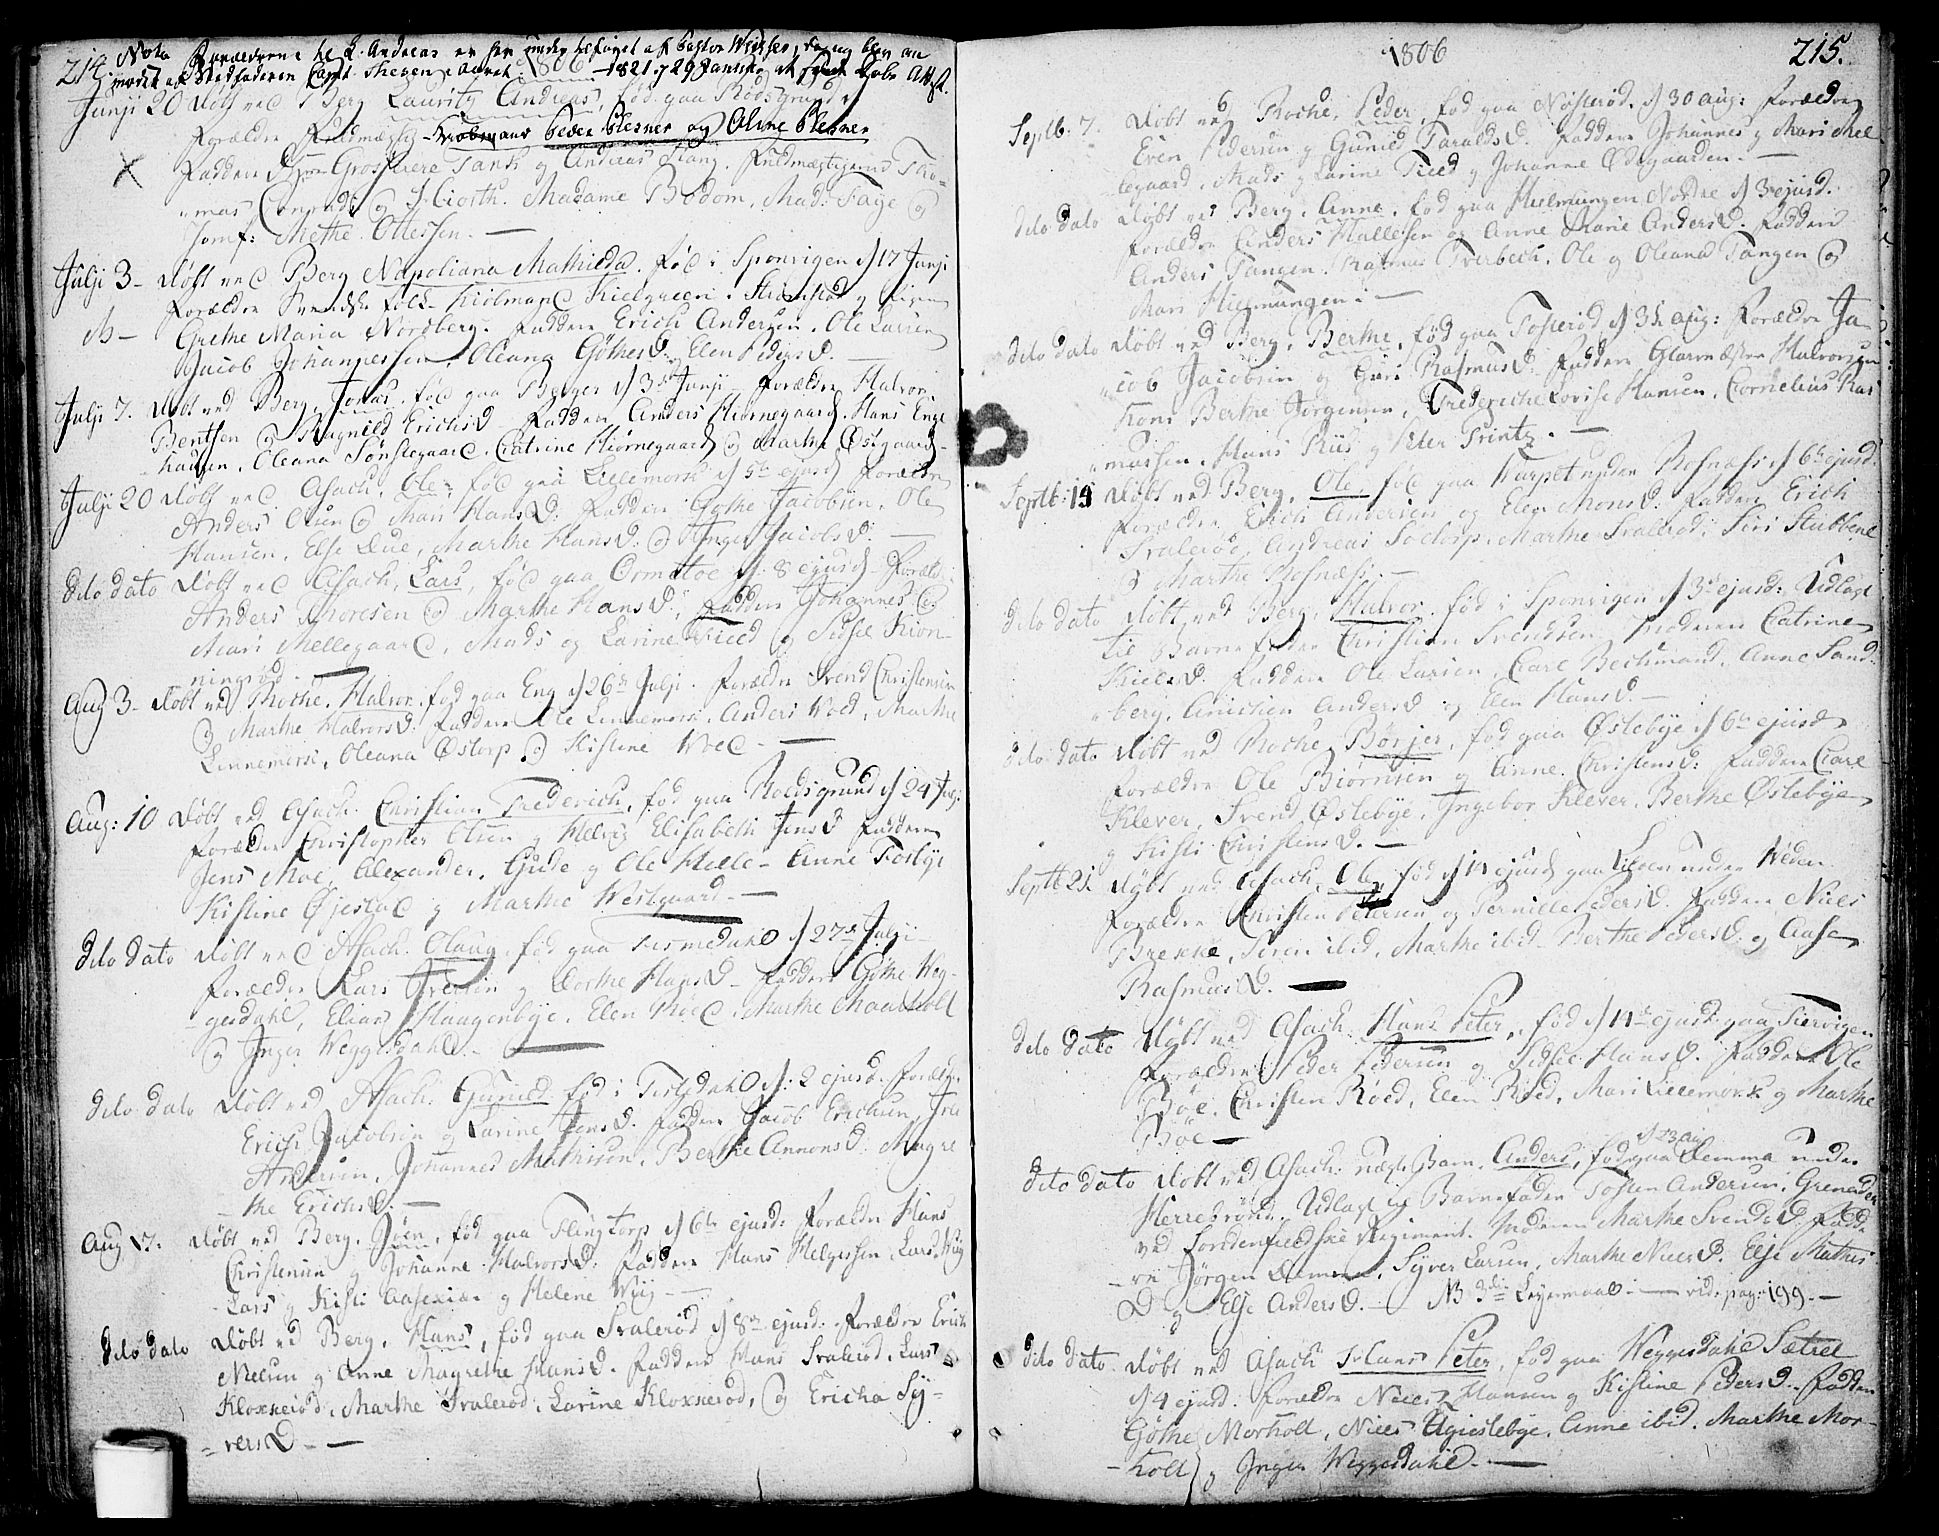 214. Nota Forældrene til L. Andreas er her under tilføiet af Pastor Wulfsberg, da ey blev an
1806
Junji 20 Døbt ved Berg Lauritz Andreas, fød paa Rødsgrund
Forældre Fuldmægtig Peder Blesner og Oline Blesner
Faddere Hrr Grosserere Tank og Andreas Stang, Fuldmægtigerne Tho-
mas Conradi og Hiorth. Madame Bodom, Mad: Faye og
Jomf: Methe Ottessen. —
Julji 3 – Døbt ved Berg Napoliana Mathilda, fød i Sponvigen d 17 Junji
Forældre Svendske Folk – Kiølmand Kielgreen i Strømstad og Pigen
Grethe Maria Nordberg. Faddere Erich Andersen, Ole Larsen
Jacob Johannessen, Oleana Göthes D. Elen Peders D. —
Julji 7. Døbt ved Berg, Jonas, fød paa Berger d 3 Junji – Forældre Halvor
Bentsen og Ragnild Erichs D – Faddere Anders Hiørnegaard, Hans Enge
Oleana Sønstegaard, Catrine Hiørnegaard og Marthe Østgaard –
Julji 20 Døbt ved Asach, Ole, fød paa Lillemork d 5te ejusd Forældre
Anders Olsen og Mari Hans D: Faddere Göthe Jacobsen, Ole
Hansen, Else Due, Marthe Hans D. og Inger Jacobs D. —
dito dato Døbt ved Asach, Lars, fød paa Ormetoe d: 8 ejusd – Foræld:
Anders Thoresen og Marthe Hans D: Faddere Johannes og
Mari Mellegaard, Mads og Larine Tieed og Sidsel Kiøn-
ningrød. —
Aug 3 – Døbt ved Rokke, Halvor, fød paa Eng d 26de Julji. Forældre Svend Christensen
og Marthe Halvors D. Faddere Ole Linnemørk, Anders Woed, Marthe
Linnemørk, Oleana Østorp og Kistine Woed – —
Aug: 10 Døbt ved Asach: Christian Frederich, fød paa Roedsgrund d 24 Julj:
Forældre Christopher Olsen og Helvig Elisabeth Jens D Faddere
Jens Moe, Alexander Gude og Ole Helle – Anne Fosbye
Kistine Øjestad og Marthe Westgaard – —
dito dato Døbt ved Asach. Olaug, fød paa Tismedahl d 27de Julji –
Forældre Lars Iversen og Dorthe Hans D – Faddere Göthe Weg-
gesdahl, Elias Haugenbye, Elen Röed, Marthe Maarholt
og Inger Weggesdahl. —
dito dato Døbt ved Asach: Gunild fød i Tistedahl d: 2 ejusd. Foræld:
Erich Jacobsen og Larine Jens D. Faddere Jacob Erichsen, Iver
Andersen, Johannes Mathisen, Berthe Ammons D. Magre
the Erichs D. —
Aug 17. Døbt ved Berg, Jørn, fød paa Flingtorp d 6te ejusd: Forældre Hans
Christensen og Johanne Halvors D. Faddere Hans Helgessen, Lars Wiig
Lars og Kisti Aasexiær og Helene Wiig —
dito dato Døbt ved Berg, Hans, fød paa Svalerød d 8de ejusd: Forældre Erich
Nielsen og Anne Magrethe Hans D. Faddere Hans Svalerød, Lars
Kloxnerød, Marthe Svalerød, Larine Kloxnerød, og Ericha Sy-
vers D – —
1806
215.
Septb. 7. Døbt ved Rokke, Peder, fød paa Nøsterød, d 30 Aug: Forældre
Even Pedersen og Gunild Taralds D. Faddere Johannes og Mari Mel
legaard, Mads og Larine Tieed og Johanne Ødegaarden. —
dito dato Døbt ved Berg, Anne, fød paa Hielmungen Nordre d 3 ejusd.
Forældre Anders Hallesen og Anne Marie Anders D. Faddere
Anders Tangen, Rasmus Tverbech, Ole og Oleana Tangen og
Mari Hielmungen. —
dito dato Døbt ved Berg, Berthe, fød paa Tosterød d 31 Aug: Forældre Ja
cob Jacobsen og Guri Rasmus D. Faddere Glarmæster Halvorsens
Kone Berthe Jørgensen, Frederiche Lovise Hansen, Cornelius Ras
mussen, Hans Riis og Peter Printz. —
Septb: 14 Døbt ved Berg, Ole, fød paa Torpet under Rosnæs d 6te ejusd.
Forældre Erich Andersen og Elen Mons D. Faddere Erich
Svalerød, Andreas Soetorp, Marthe Svalerød, Siri Stubbene
og Marthe Rosnæs. —
dito dato Døbt ved Berg, Halvor, fød i Sponvigen d 3de ejusd: Udlagt
til Barnefader Christian Svendsen, Moderen Catrine
Kiels D. Faddere Ole Larsen, Carl Bechmand, Anne Sand-
berg, Anichen Anders D og Elen Hans D —
dito dato Døbt ved Rokke, Børjer, fød paa Østebye d 6te ejusd
Forældre Ole Biørnsen og Anne Christens D: Faddere Carl
Klever, Svend Østebye, Ingebor Klever, Berthe Østebye
og Kisti Christens D. —
Septb 21. Døbt ved Asach, Ole, fød d 14 ejusd paa Lileen under Weden
Forældre Christen Petersen og Pernille Peders D. Faddere Niels
Brekke, Søren ibid, Marthe ibid – Berthe Peders D. og Aase
Rasmus D. —
dito dato Døbt ved Asach: Hans Peter, fød d 14de ejusd: paa Tiervigen
Forældre Peder Pedersen og Sidsel Hans D. Faddere Ole
Bøe, Christen Röed, Elen Röed, Mari Lillemork og Marthe
Bøe —
d 23 Aug
dito dato Døbt ved Asach: uægte Barn, Anders, fød paa Lemma under
Herrebrøden. Udlagt til Barnefader Tosten Andersen, Grenader
ved Søndenfieldske Regiment. Moderen Marthe Svends D: Fadde
re Jørgen Lemma, Syver Larsen, Marthe Niels D. Else Mathis
D og Else Anders D. — NB 3die Leyermaal. — vid: pag: 199. —
dito dato Døbt ved Asach Hans Peter, fød paa Weggesdahl Sætret
d 4 ejusd. Forældre Niels Hansen og Kistine Peders D. Faddere
Göthe Morholt, Niels Ugieslebye, Anne ibid, Marthe Mor-
holt og Inger Weggesdahl. —